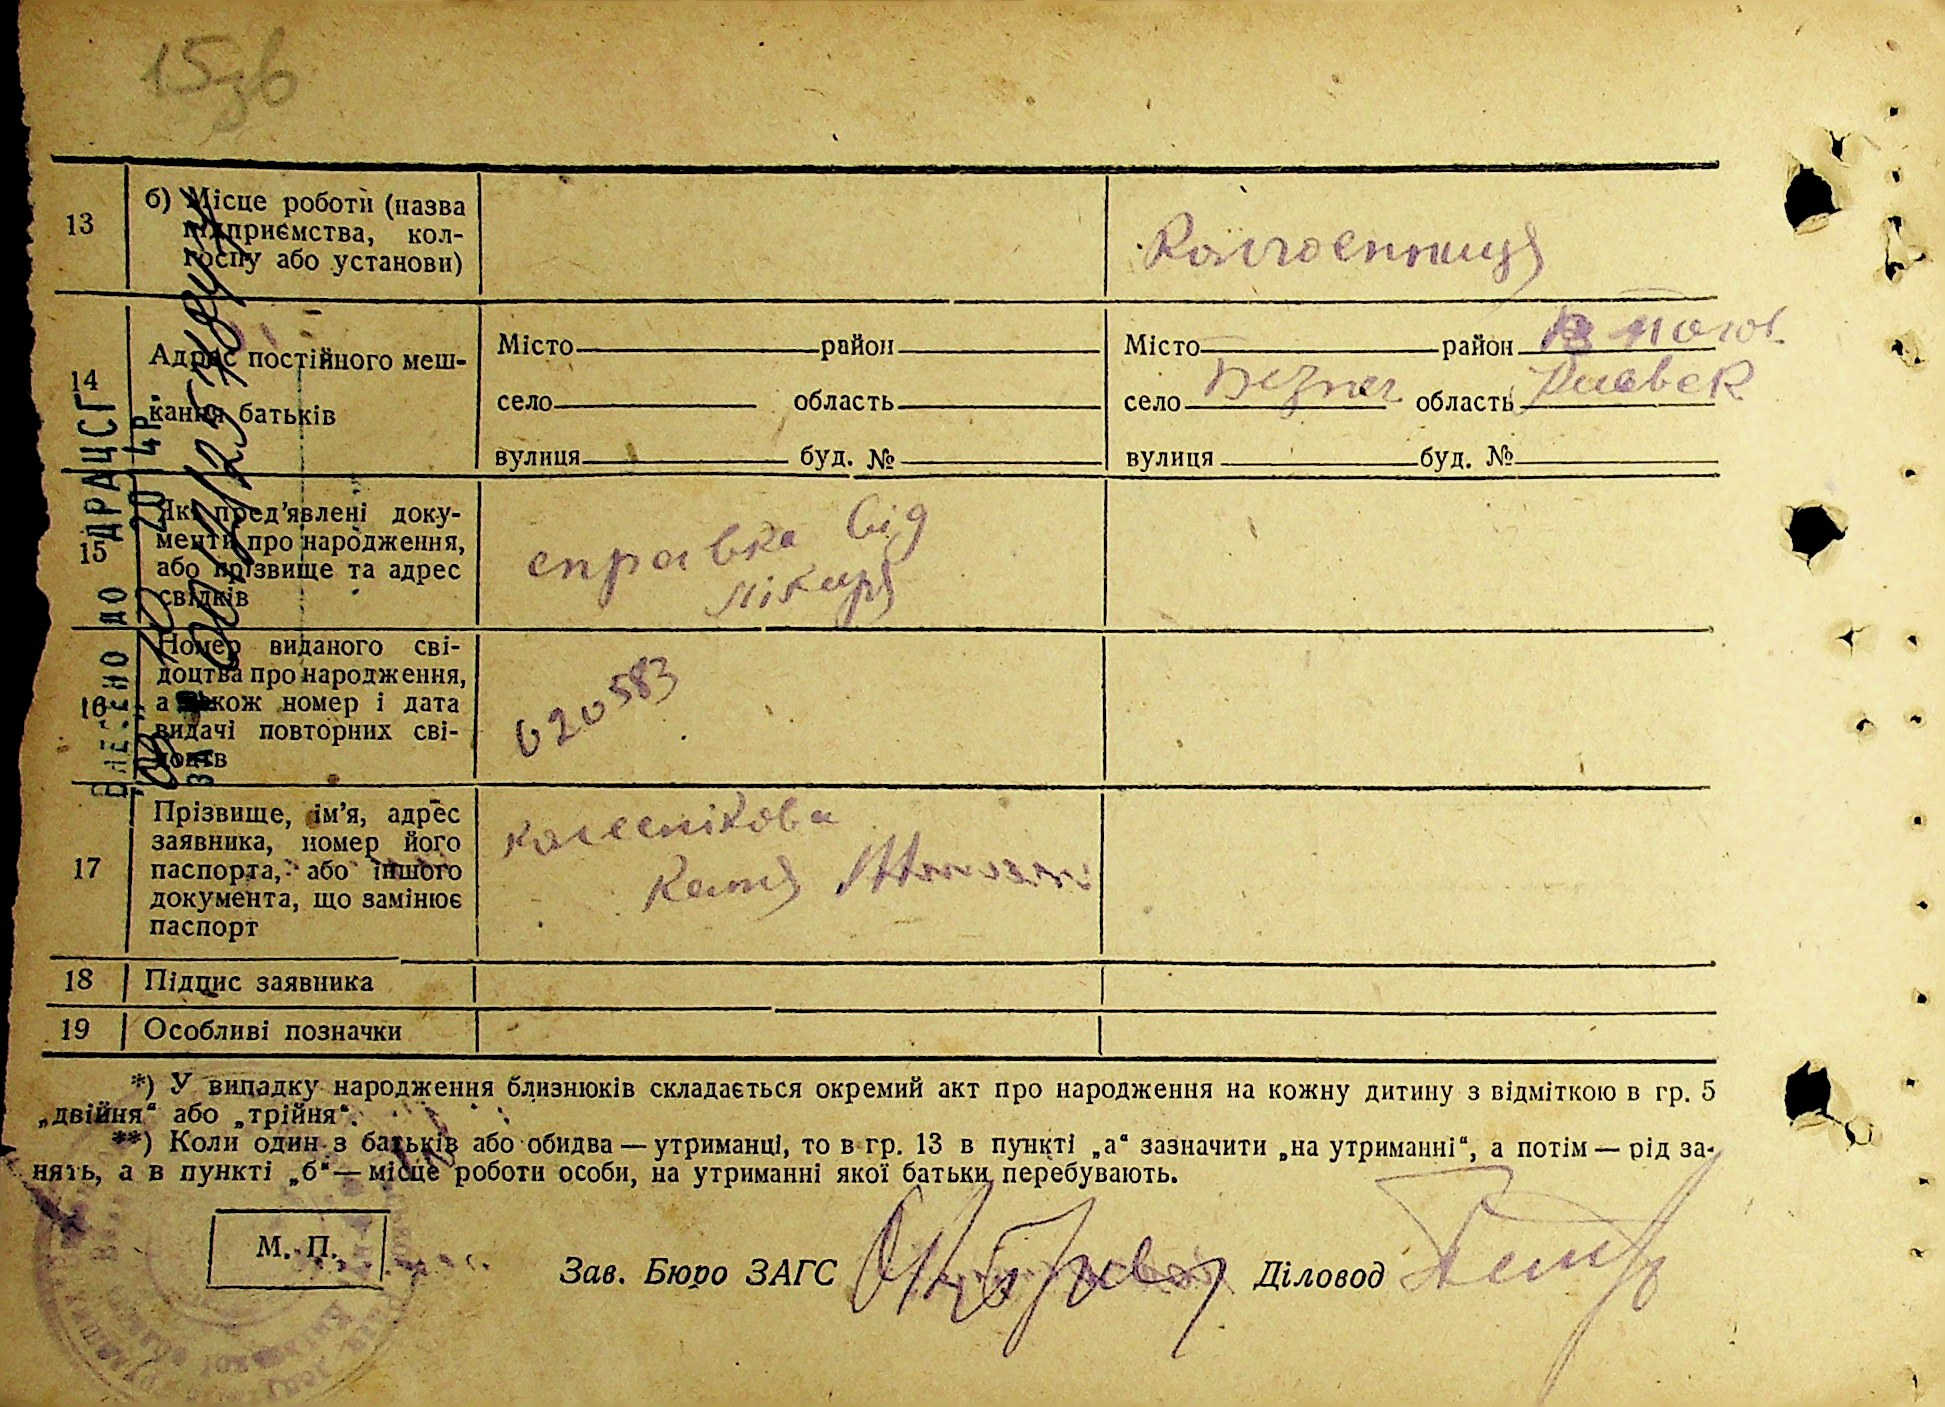 15зв
13 б) Місце роботи (назва
підприємства, кол-
госпу або установи)
Колгоспниця
14 Адрес постійного меш-
кання батьків
Місто район
село область
вулиця буд. №
Місто район
село область Київськ
вулиця буд. №
15 Які пред'явлені доку-
менти про народження,
або прізвище та адрес
свідків
справка від
лікаря
16 Номер виданого сві-
доцтва про народження,
а також номер і дата
видачі повторних сві-
доцтв
620583
17 Прізвище, ім'я, адрес
заявника, номер його
паспорта, або іншого
документа, що замінює
паспорт
Колеснікова
Катя
18 Підпис заявника
19 Особливі позначки
*) У випадку народження близнюків складається окремий акт про народження на кожну дитину з відміткою в гр. 5
„двійня“ або „трійня“.
**) Коли один з батьків або обидва — утриманці, то в гр. 13 в пункті „а“ зазначити „на утриманні“, а потім — рід за-
нять, а в пункті „б“ — місце роботи особи, на утриманні якої батьки перебувають.
М. П.
Зав. Бюро ЗАГС Діловод
ВНЕСЕНО ДО ДРАЦСГ
20 р.
за №